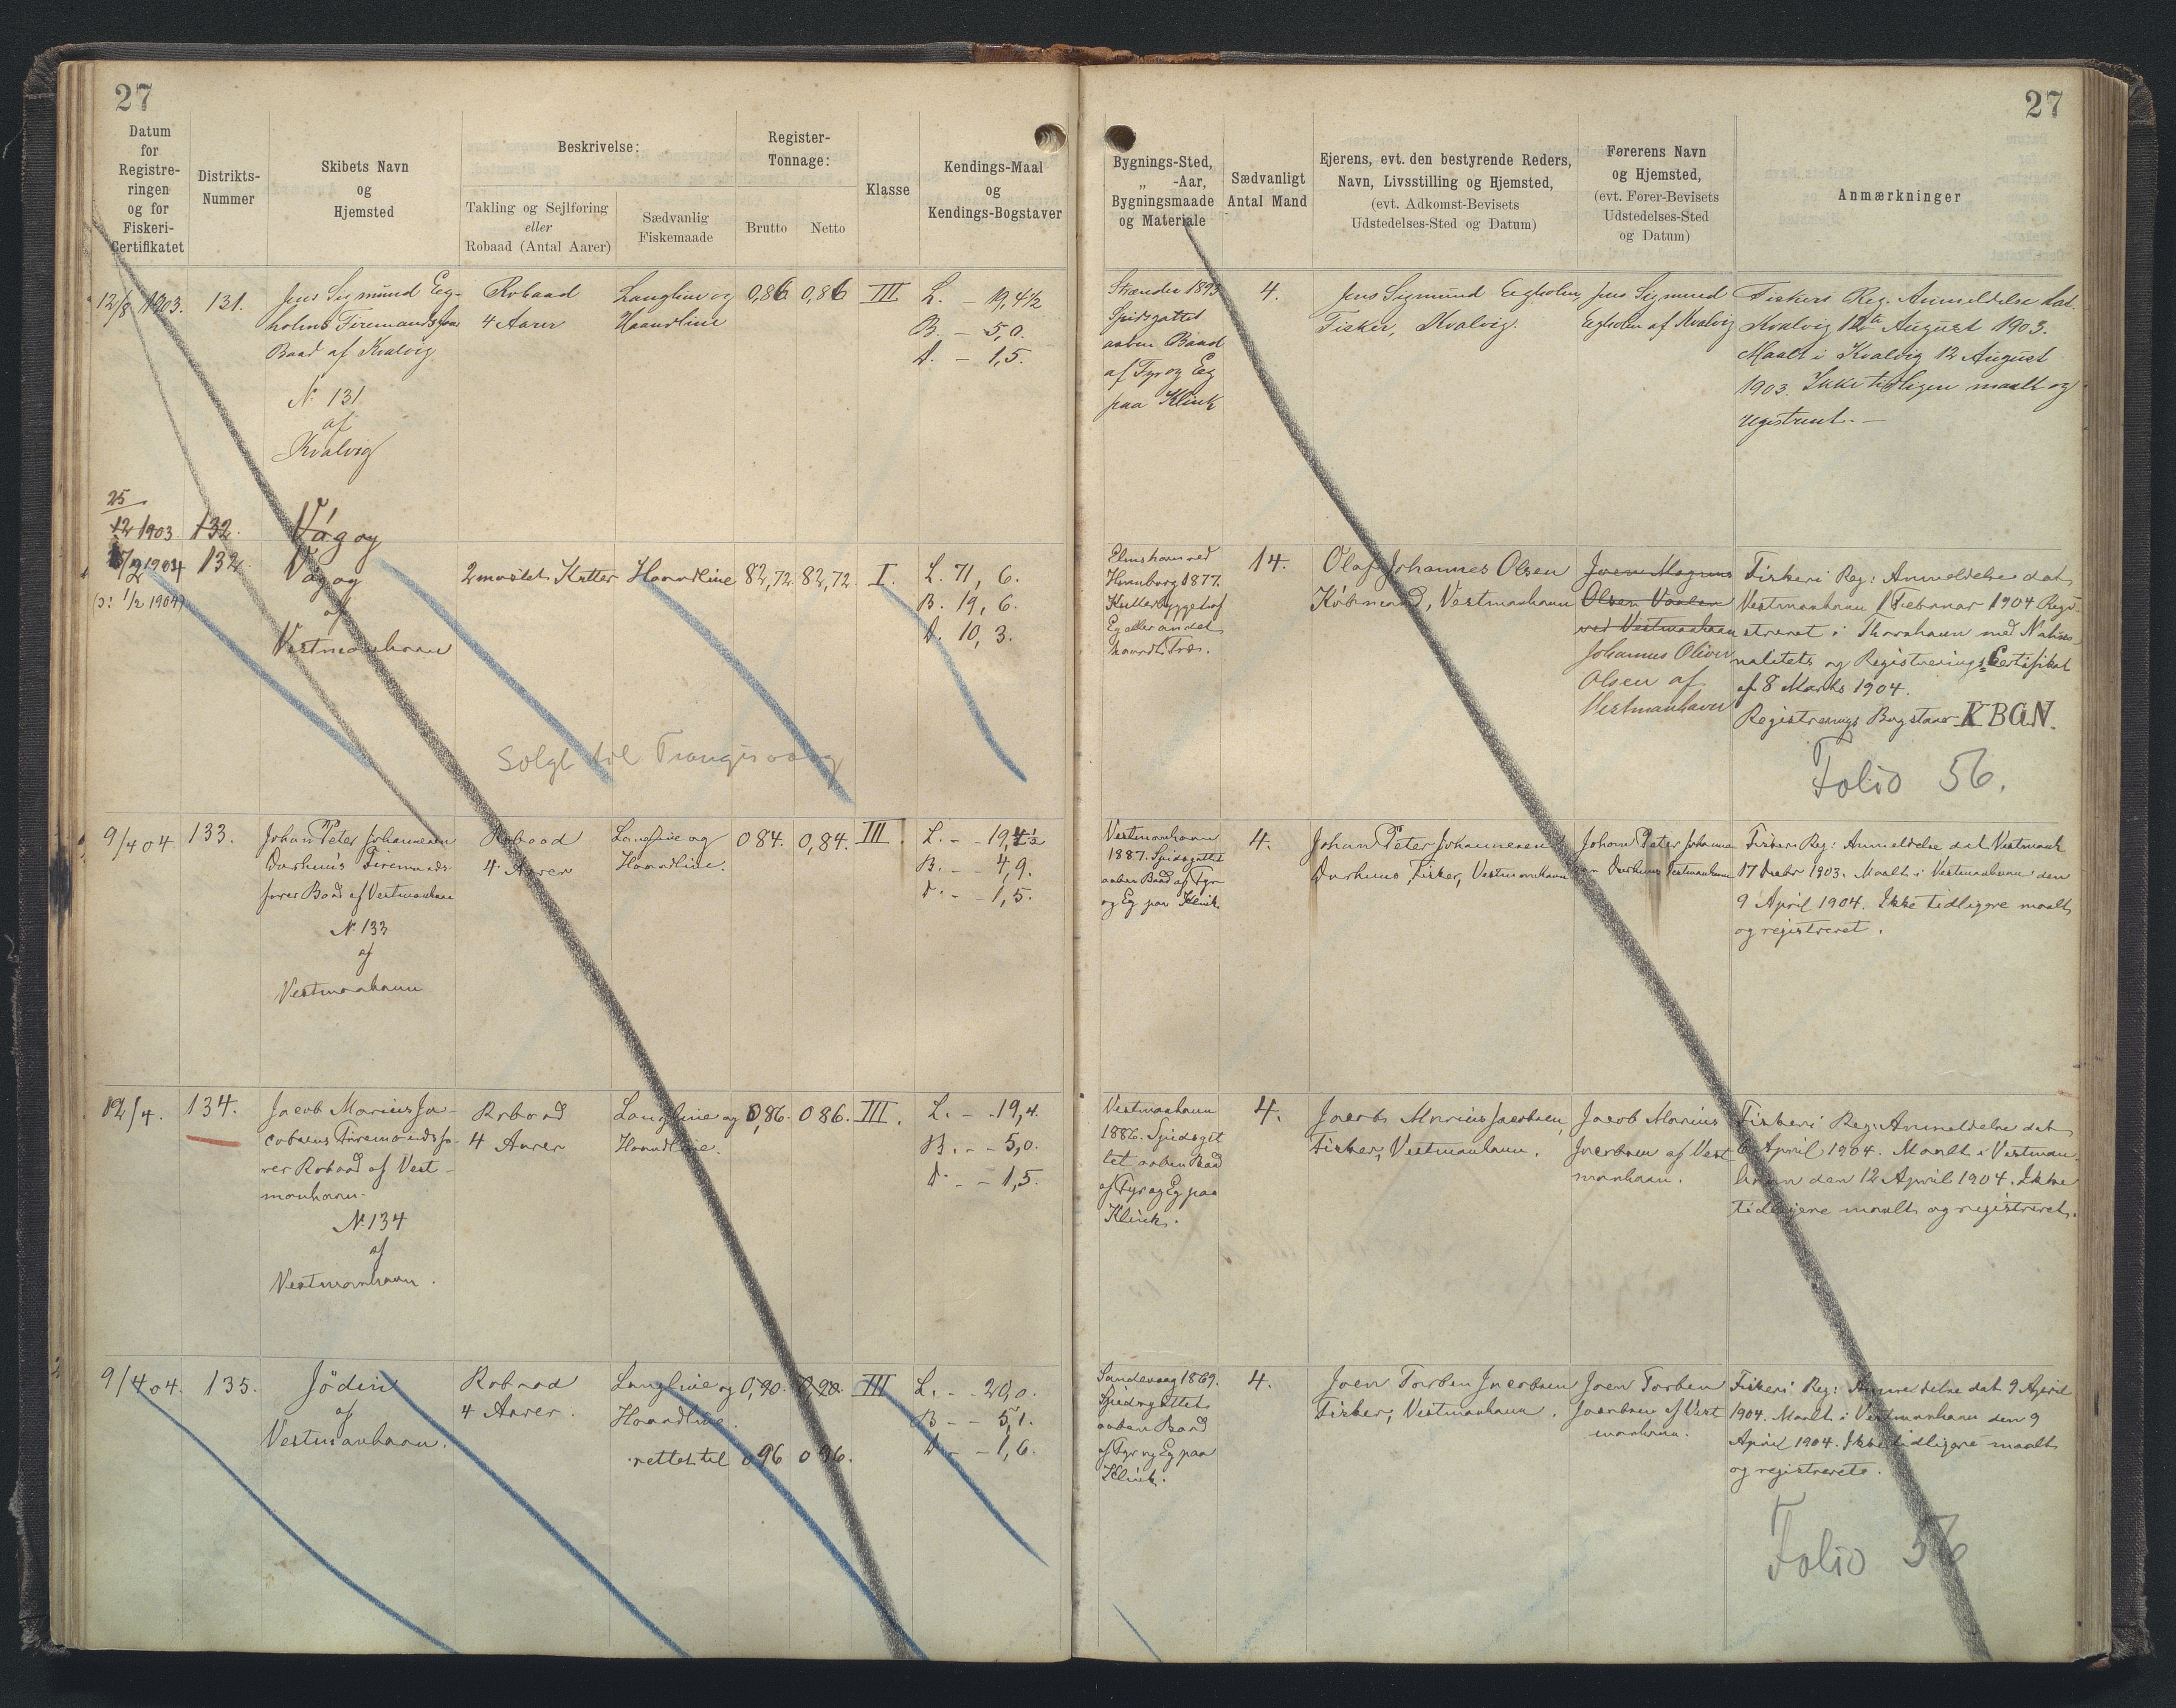 27
27
Datum
for
Registre-
ringen
og for
Fiskeri-
Certifikatet
Distrikts-
Nummer
Skibets Navn
og
Hjemsted
Beskrivelse:
Takling og Sejlføring
eller
Robaad (Antal Aarer)
Sædvanlig
Fiskemaade
Register-
Tonnage:
Brutto
Netto
Klasse
Kendings-Maal
og
Kendings-Bogstaver
Bygnings-Sted,
„ -Aar,
Bygningsmaade
og Materiale
Sædvanligt
Antal Mand
Ejerens, evt. den bestyrende Reders,
Navn, Livsstilling og Hjemsted,
(evt. Adkomst-Bevisets
Udstedelses-Sted og Datum)
Førerens Navn
og Hjemsted,
(evt. Fører-Bevisets
Udstedelses-Sted
og Datum)
Anmærkninger
12/8 1903.
131.
Jens Sigmund Eg-
holms Firemandsfars
Baad af Kvalvig
N. 131
af
Kvalvig
Robaad
4 Aarer
Langline og
Haandline
0,86
0,86
III
L. - 19,4½
B. - 5,0.
D. - 1,5.
Spidsgattet
aaben Baad
af Fyr og Eg
paa Klink
4.
Jens Sigmund Egholm,
Fisker, Kvalvig.
Jens Sigmund
Egholm af Kvalvig
Fiskeri Reg. Anmeldelse dat.
Kvalvig 12te August 1903.
Maalt i Kvalvig 12 August
1903. Ikke tidligere maalt og
registreret. -
25
12 1903
132.
Vágoy
132.
(ɔ: 1/2 1904)
Vágoy
af
Vestmanhavn
2 mastet Kutter
Haandline
82,72
82,72
I.
L. 71, 6.
B. 19, 6.
D. 10, 3.
Elmshorn ved
Hamborg 1877.
Kutterbygget af
Eg eller andet
haardt Træ.
14.
Olaf Johannes Olsen
Købmand, Vestmanhavn
Joen Magnus
Olsen
ved Vestmanhavn
Johannes Oliver
Olsen af
Vestmanhavn
Fiskeri Reg: Anmeldelse dat
Vestmanhavn 1 Februar 1904 Regi-
streret i Thorshavn med Natio-
nalitets og Registrerings-Certifikat
af 8 Marts 1904.
Registrerings Bogstaver KBGN.
Solgt til Trangisvaag
Folio 56.
9/4 04
133.
Johan Peter Johannesen
Durhuus Firemands-
farer Baad af Vestmanhavn
N. 133
af
Vestmanhavn
Robaad
4 Aarer
Langline og
Haandline.
0 84.
0,84.
III.
L. - - 19,4½
B. - - 4,9.
D. - - 1,5.
Vestmanhavn
1887. Spidsgattet
aaben Baad af Fyr
og Eg paa Klink
4.
Johan Peter Johannesen
Durhuus, Fisker, Vestmanhavn
Johan Peter Johannes
en Durhuus Vestmanhavn
Fiskeri Reg: Anmeldelse dat Vestmanh
17 Decbr 1903. Maalt i Vestmanhavn den
9 April 1904. Ikke tidligere maalt
og registreret.
12/4.
134.
Jacob Marius Ja-
cobsens Firemandsfa-
rer Robaad af Vest-
manhavn.
N. 134
af
Vestmanhavn.
Robaad
4 Aarer
Langline og
Haandline.
0,86.
0 86.
III.
L. - - 19,4.
B. - - 5,0.
D. - - 1,5.
Vestmanhavn
1886. Spidsgat
tet aaben Baad
af Fyr og Eg paa
Klink.
4.
Jacob Marius Jacobsen,
Fisker, Vestmanhavn.
Jacob Marius
Jacobsen af Vest
manhavn.
Fiskeri Reg: Anmeldelse dat
6 April 1904. Maalt i Vestman-
havn den 12 April 1904. Ikke
tidligere maalt og registreret.
9/4 04.
135.
Jödin
af
Vestmanhavn.
Robaad
4 Aarer.
Langline og
Haandline.
rettet til
0,90.
0,90.
0 96
0 96.
III
L. - - 20,0.
B - - 5,1.
D. - - 1,6.
Sandevaag 1869.
Spidsgattet
aaben Baad
af Fyr og Eg paa
Klink.
4.
Joen Torben Jacobsen
Fisker, Vestmanhavn.
Joen Torben
Jacobsen af Vest
manhavn.
Fiskeri Reg: Anmeldelse dat 9 April
1904. Maalt i Vestmanhavn den 9
April 1904. Ikke tidligere maalt
og registreret.
Folio 56